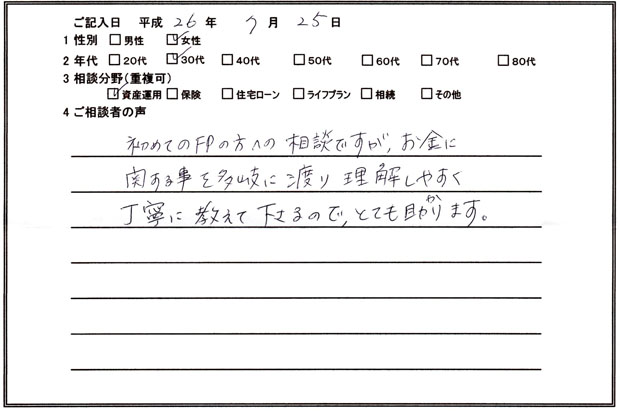 ご記入日 平成 26 年 7 月 25 日
1 性別 □男性 ☑女性
2 年代 □20代 ☑30代 □40代 □50代 □60代 □70代 □80代
3 相談分野(重複可)
☑資産運用 □保険 □住宅ローン □ライフプラン □相続 □その他
4 ご相談者の声
初めてのFPの方への相談ですが、お金に
関する事を多岐に渡り理解しやすく
丁寧に教えて下さるので、とても助かります。